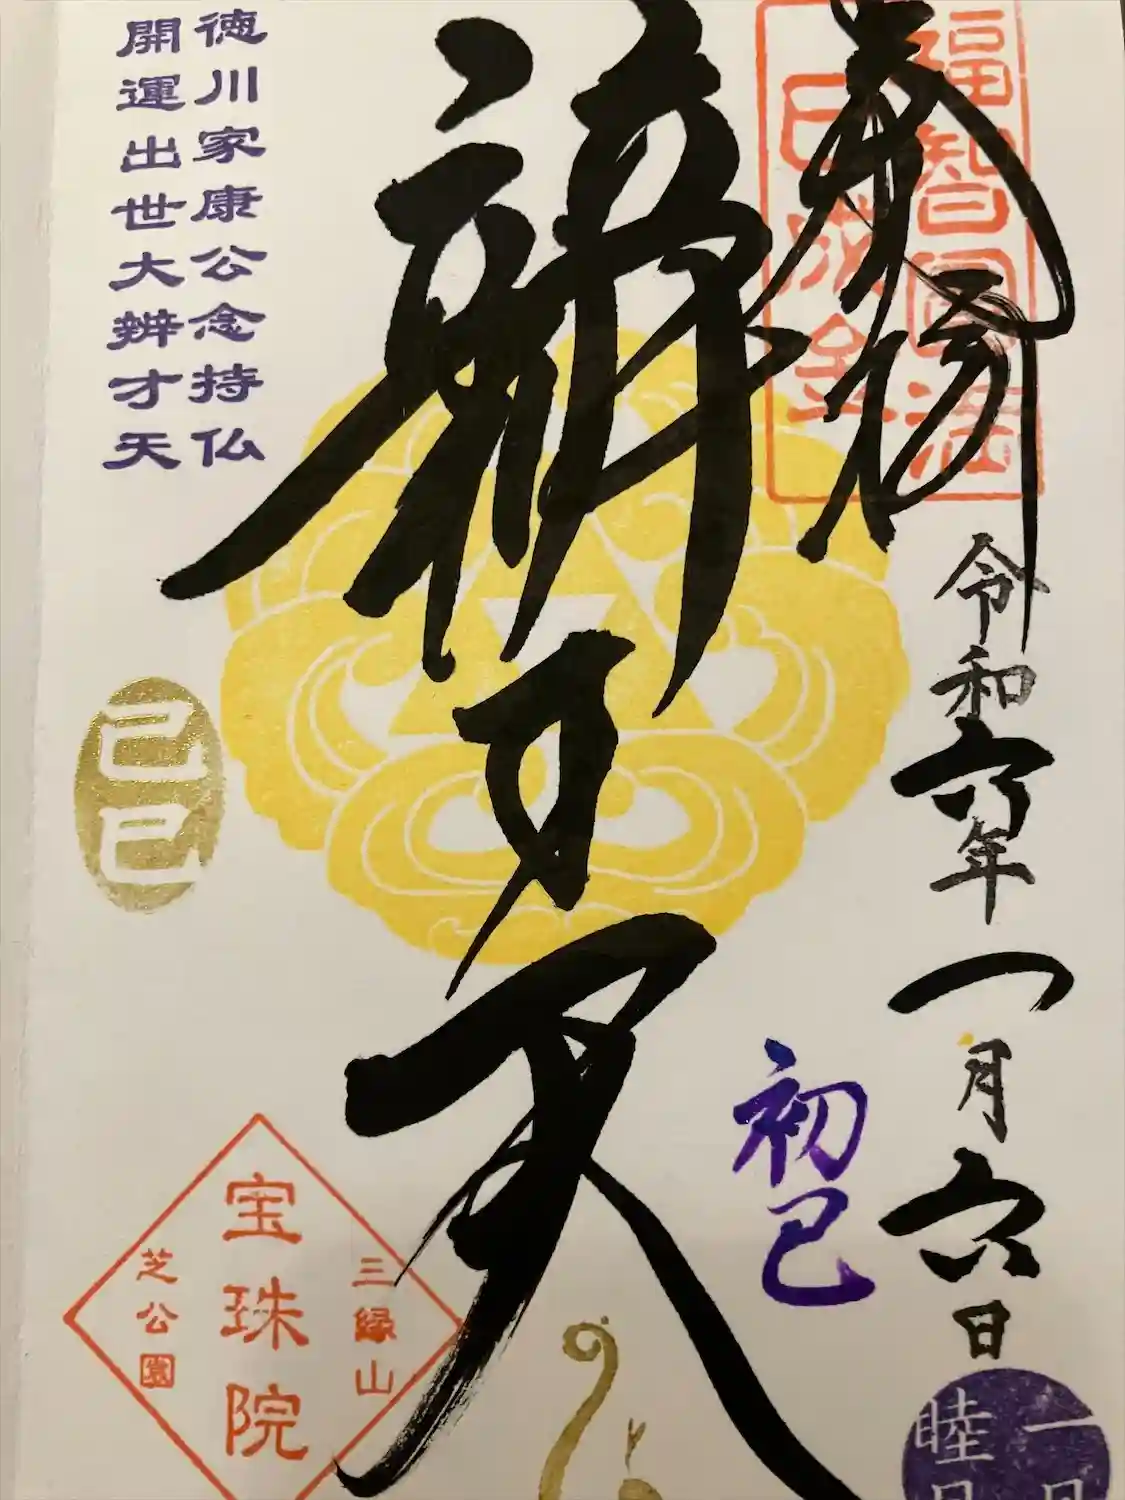 奉拝
福智円満
巳成金
令和六年一月六日
初巳
一月
睦月
辨才天
徳川家康公念持仏
開運出世大辨才天
己巳
三縁山
宝珠院
芝公園